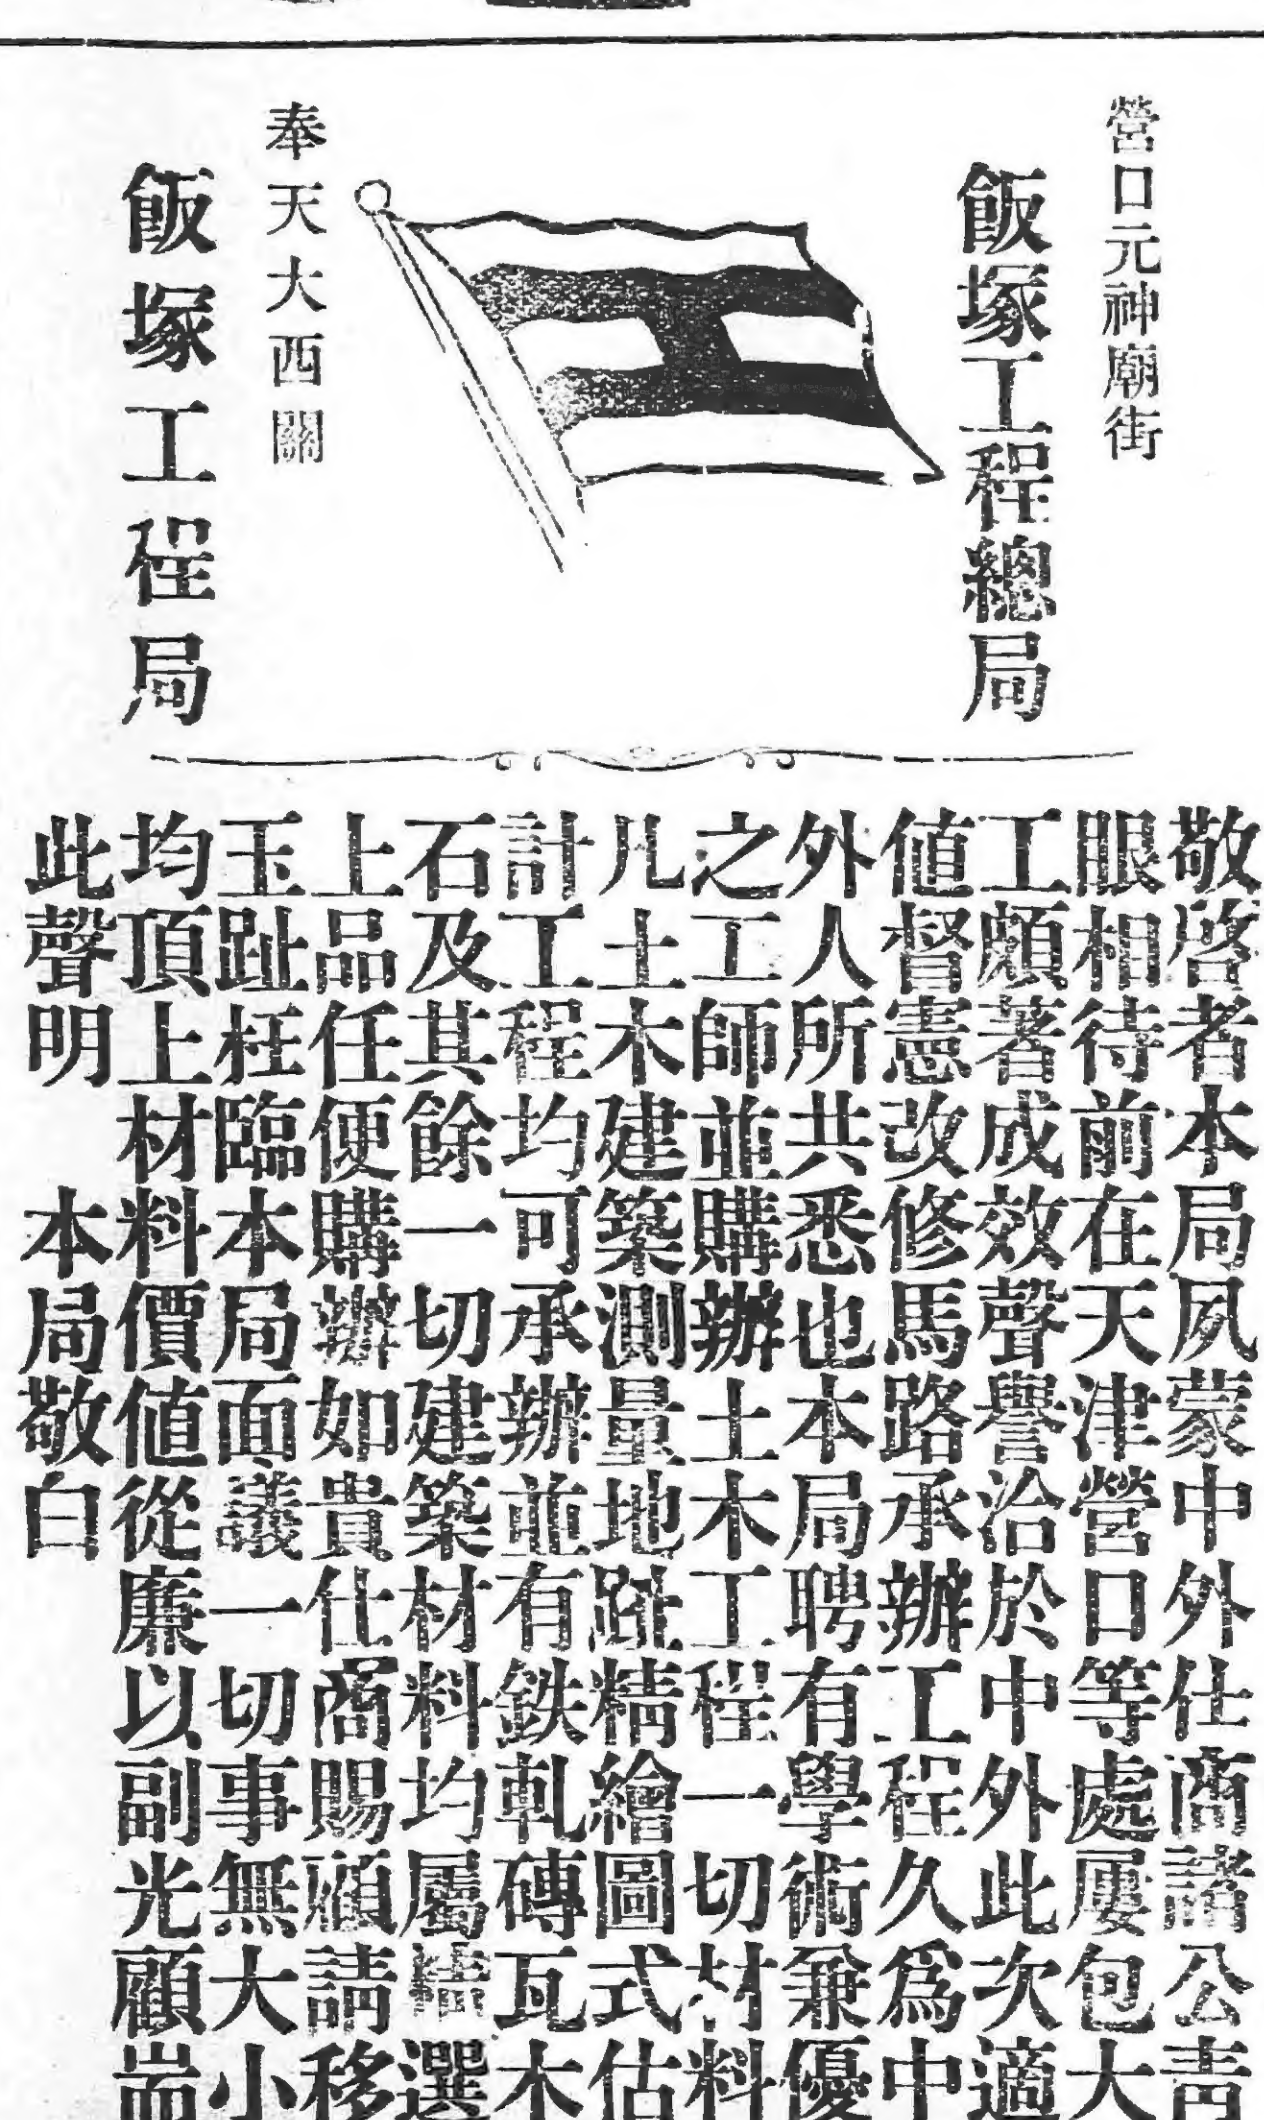 營口元神廟街
飯塚工程總局
奉天大西關
飯塚工程局
敬啓者本局夙蒙中外仕商諸公靑
眼相待前在天津營口等處屢包大
工頗著成效聲譽洽於中外此次適
値督憲改修馬路承辦工程久爲中
外人所共悉也本局聘有學術兼優
之工師並購辦土木工程一切材料
凡土木建築測量地趾精繪圖式估
計工程均可承辦並有鉄軋磚瓦木
石及其餘一切建築材料均屬精選
上品任便購辦如貴仕商賜顧請移
玉趾枉臨本局面議一切事無大小
均頂上材料價値從廉以副光顧耑
此聲明 本局敬白